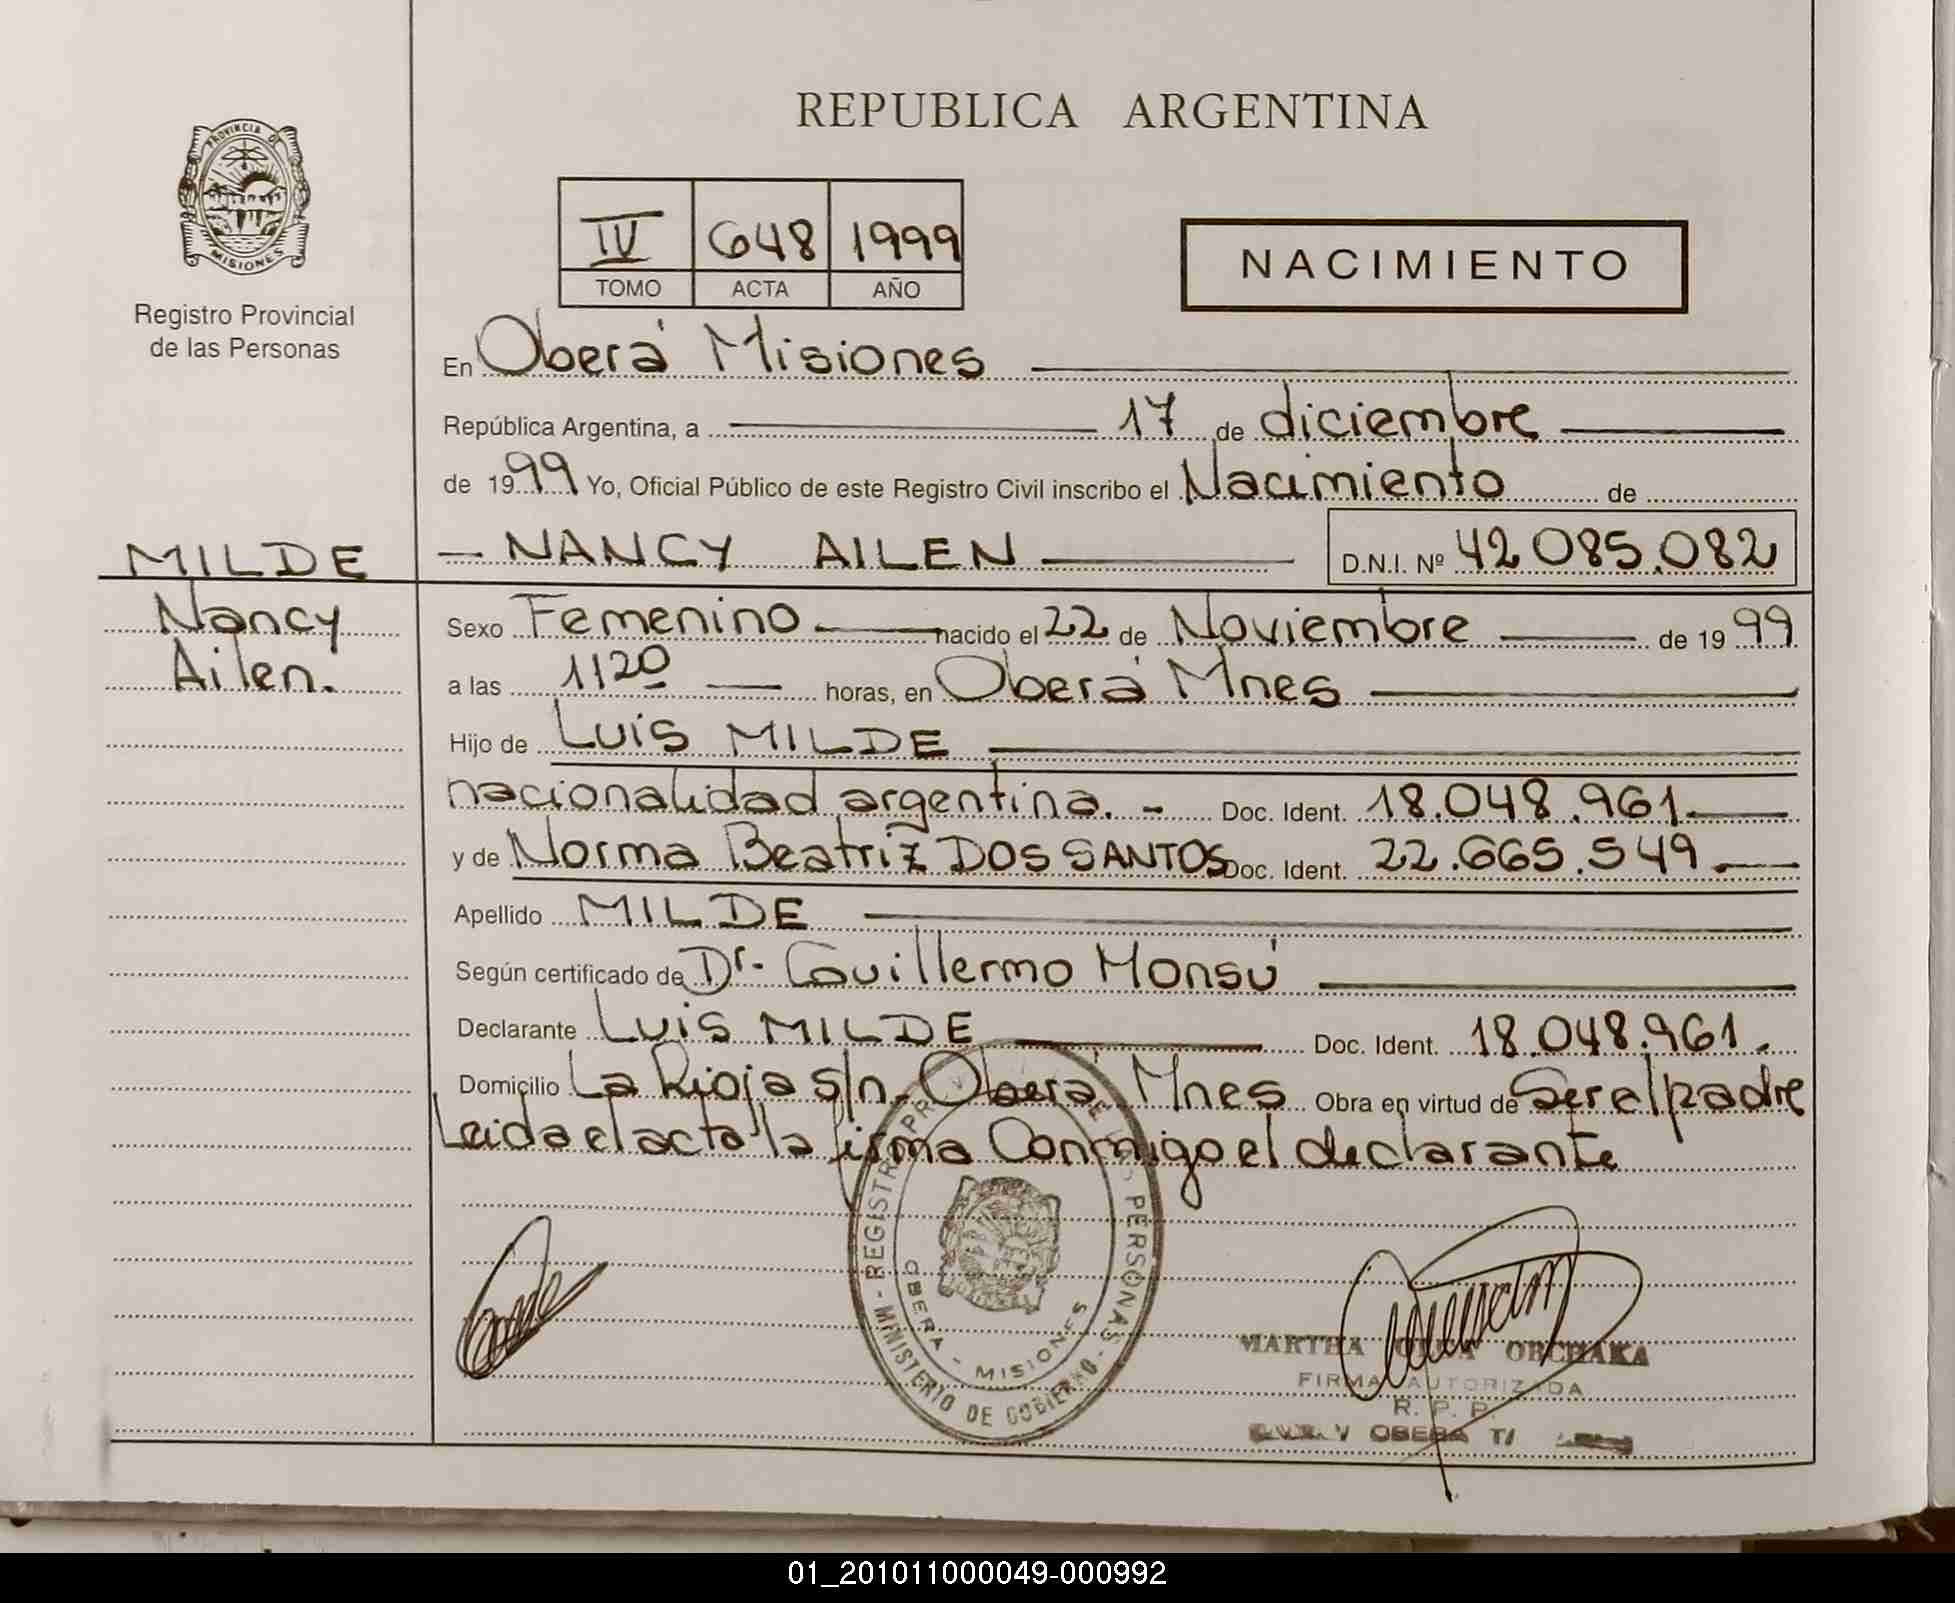 REPUBLICA ARGENTINA
PROVINCIA DE
MISIONES
Registro Provincial
de las Personas
IV 648 1999
TOMO ACTA AÑO
NACIMIENTO
En Oberá Misiones
República Argentina, a 17 de diciembre
de 1999 Yo, Oficial Público de este Registro Civil inscribo el Nacimiento de
NANCY AILEN D.N.I. Nº 42085.082
MILDE
Nancy
Ailen.
Sexo Femenino nacido el 22 de Noviembre de 1999
a las 1120 horas, en Oberá Mnes
Hijo de Luis MILDE
nacionalidad argentina. - Doc. Ident. 18.048.961
y de Norma Beatriz DOS SANTOS Doc. Ident. 22.665.549.
Apellido MILDE
Según certificado de Dr. Guillermo Monsú
Declarante Luis MILDE Doc. Ident. 18.048.961.
Domicilio La Rioja s/n. Oberá Mnes Obra en virtud de Ser el padre
Leida el acta la firma Conmigo el declarante
REGISTRO PROV DE LAS PERSONAS
- MINISTERIO DE GOBIERNO -
OBERA - MISIONES
MARTHA OBCHAKA
FIRMA AUTORIZADA
R. P. P.
OBERA
01_201011000049-000992